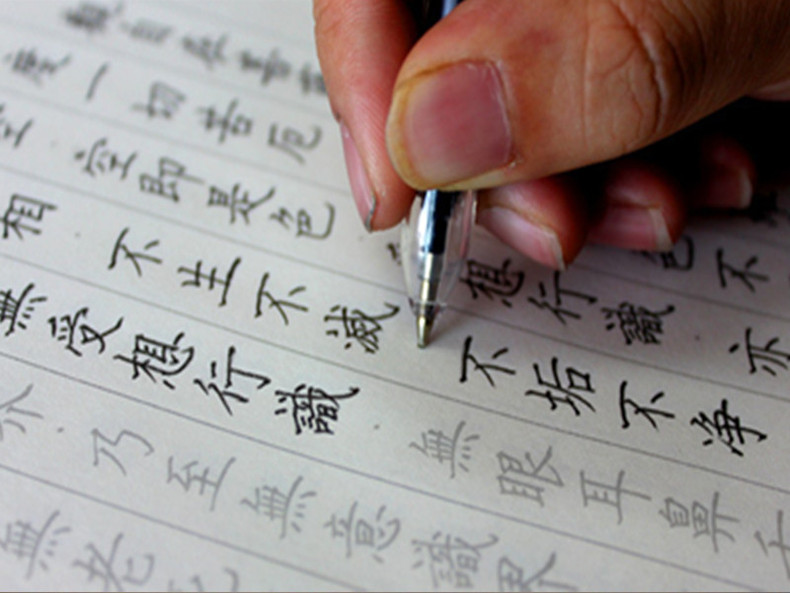 度一切苦厄 色不
空 空即是色 想行識 亦
相 不生不滅 不垢不净
無受想行識 無眼耳鼻舌
乃至無意識界
無老死